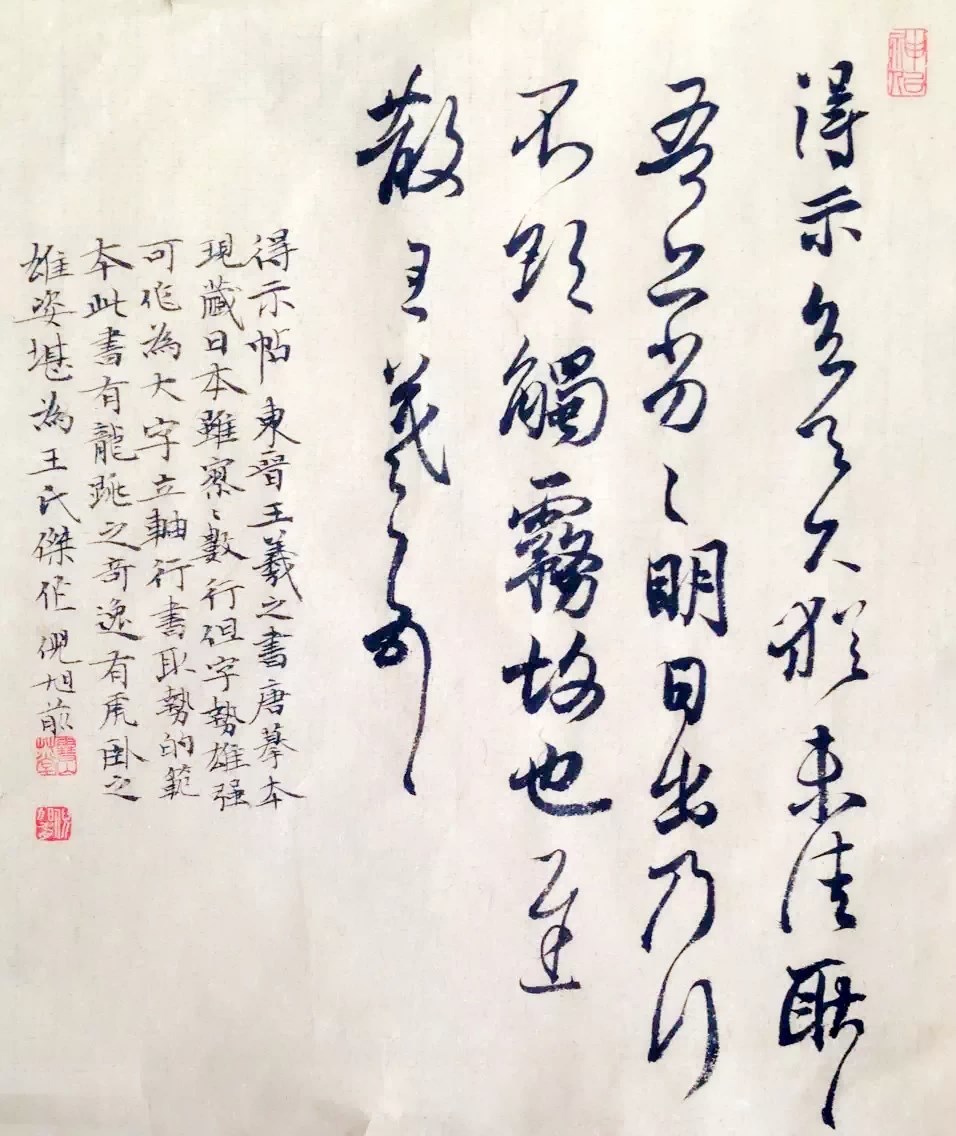 得示知足下猶未佳耿〻
吾亦劣〻明日出乃行
不欲觸霧故也遲
散王羲之頓首
得示帖 東晉王羲之書唐摹本
現藏日本雖寥〻數行但字勢雄强
可作為大字立軸行書取勢的範
本此書有龍跳之奇逸有虎卧之
雄姿堪為王氏傑作倪旭前